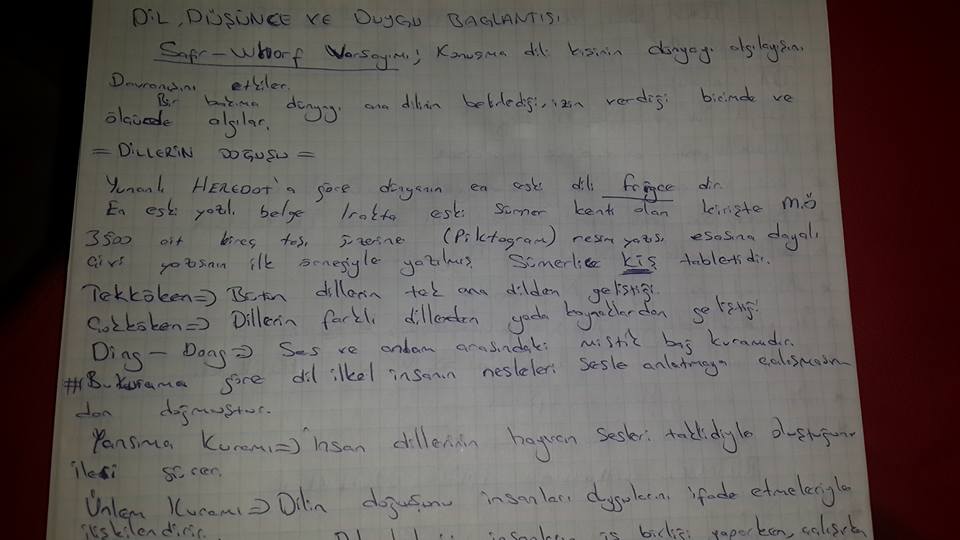 DİL, DÜŞÜNCE VE DUYGU BAĞLANTISI
Sapır-Whorf Varsayımı; Konuşma dili kişinin dünyayı algılayışını
Davranışını etkiler.
Bir bakıma dünyayı ana dilinin belirlediği, izin verdiği biçimde ve
ölçüde algılar.
= DİLLERİN DOĞUŞU =
Yunanlı HEREDOT'a göre dünyanın en eski dili frigce dir.
En eski yazılı belge Irakta eski Sümer kenti olan kirişte M.Ö
3500 ait kireç taşı üzerine (Piktogram) resim yazısı esasına dayalı
Çivi yazısının ilk örneğiyle yazılmış Sümerlice KİŞ tabletidir.
Tekköken => Bütün dillerin tek ana dilden geliştiği.
Çokköken => Dillerin farklı dillerden yada kaynaklardan geliştiği
Ding - Dong => Ses ve anlam arasındaki mistik bağ kuramıdır.
# Bu kurama göre dil ilkel insanın nesneleri sesle anlatmaya çalışmasın
dan doğmuştur.
Yansıma Kuramı => İnsan dillerinin hayvan sesleri taklidiyle oluştuğunu
ileri sürer.
Ünlem Kuramı => Dilin doğuşunu insanları duygularını ifade etmeleriyle
ilişkilendirir.
insanların iş birliği yaparken, çalışırken